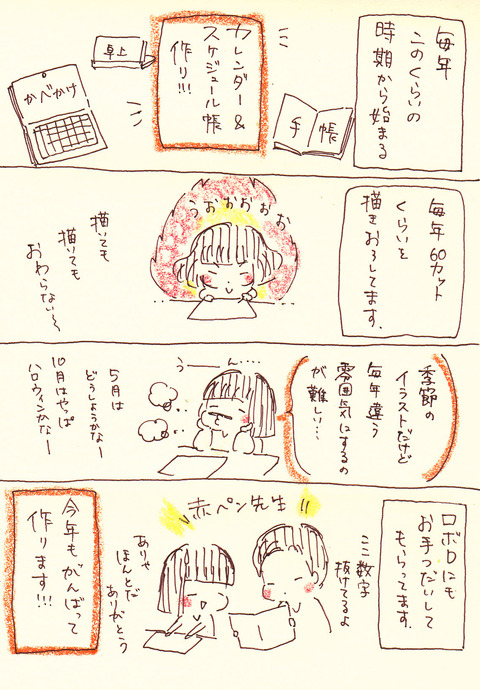 毎年
このくらいの
時期から始まる
手帳
カレンダー&
スケジュール帳
作り!!!
卓上
かべかけ
毎年60カット
くらいを
描きおろしてます。
うおおおおお
描いても
描いても
おわらない〜
季節の
イラストだけど
毎年違う
雰囲気にするの
が難しい…
うーん....
5月は
どうしようかなー
10月はやっぱ
ハロウィンかなー
ロボロにも
お手つだいして
もらってます。
赤ペン先生!!
ここ数字
抜けてるよ
ありゃ
ほんとだ
ありがとう
今年もがんばって
作ります!!!